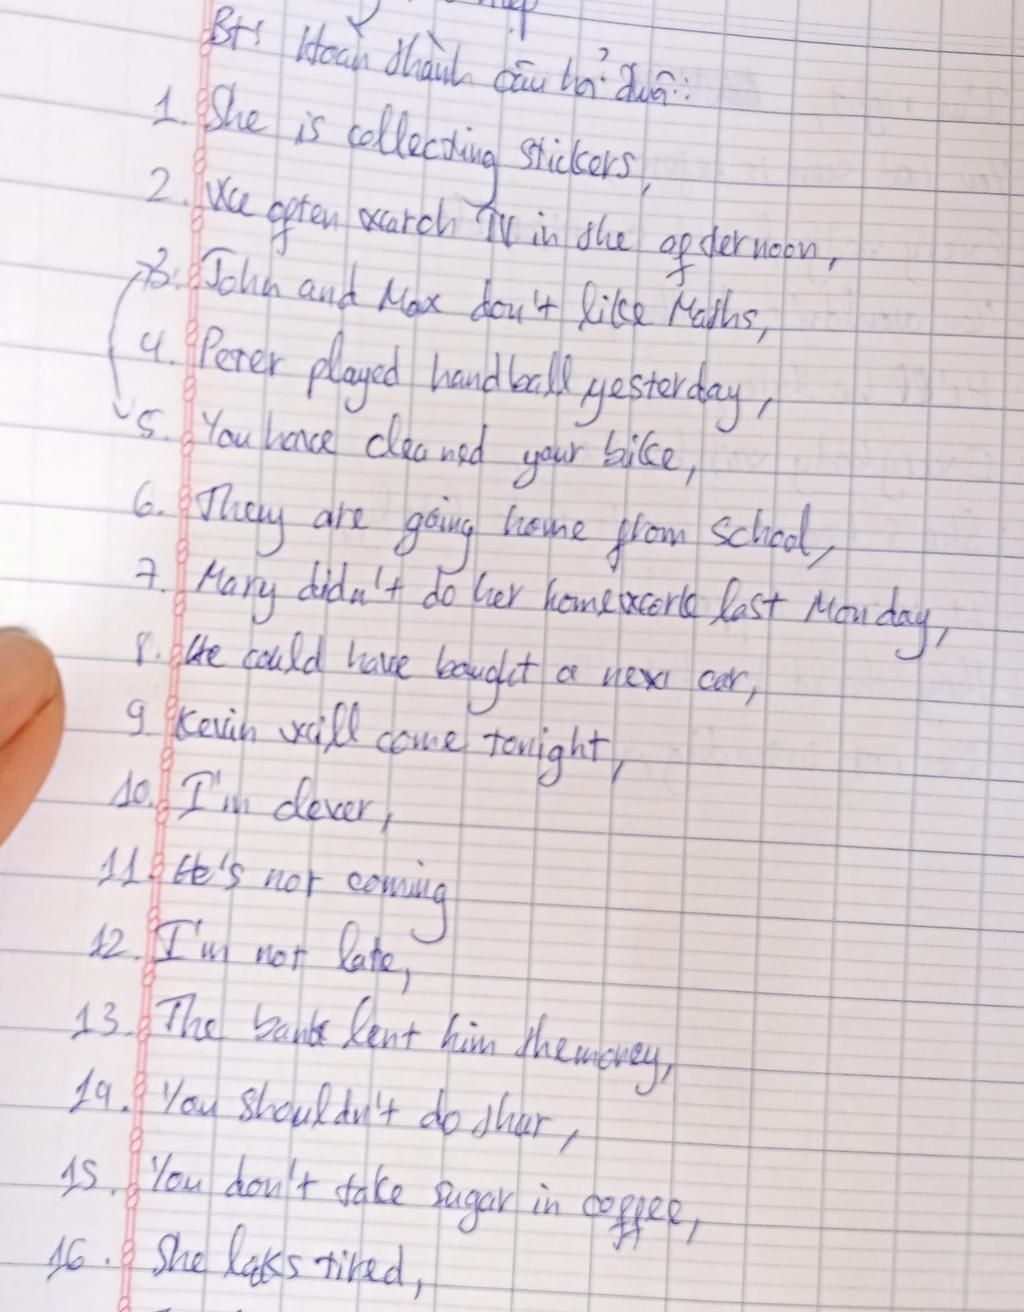 BT: Hoàn thành câu hỏi đuôi:
1. She is collecting stickers,
2. We often watch TV in the afternoon,
3. John and Max don't like Maths,
4. Peter played handball yesterday,
5. You have cleaned your bike,
6. They are going home from school,
7. Mary didn't do her homework last Monday,
8. He could have bought a new car,
9. Kevin will come tonight,
10. I'm clever,
11. He's not coming
12. I'm not late,
13. The bank lent him the money,
14. You shouldn't do that,
15. You don't take sugar in coffee,
16. She looks tired,